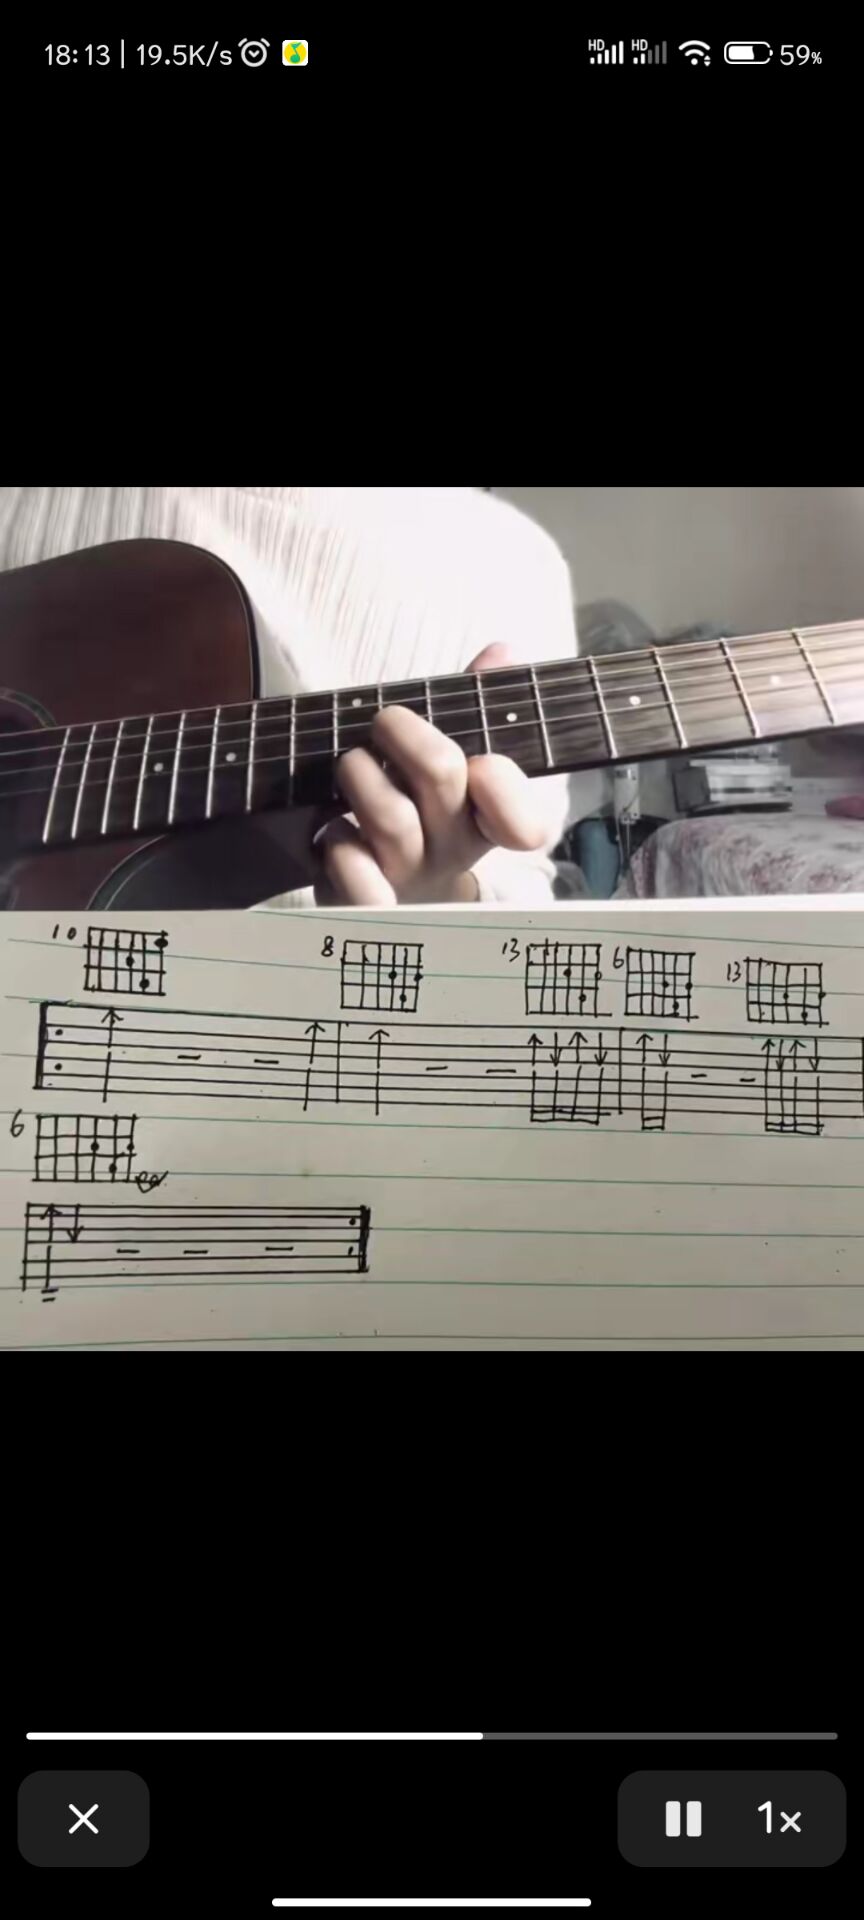 18:13 | 19.5K/s
HD HD 59%
10 8 13 6 13
6
1x